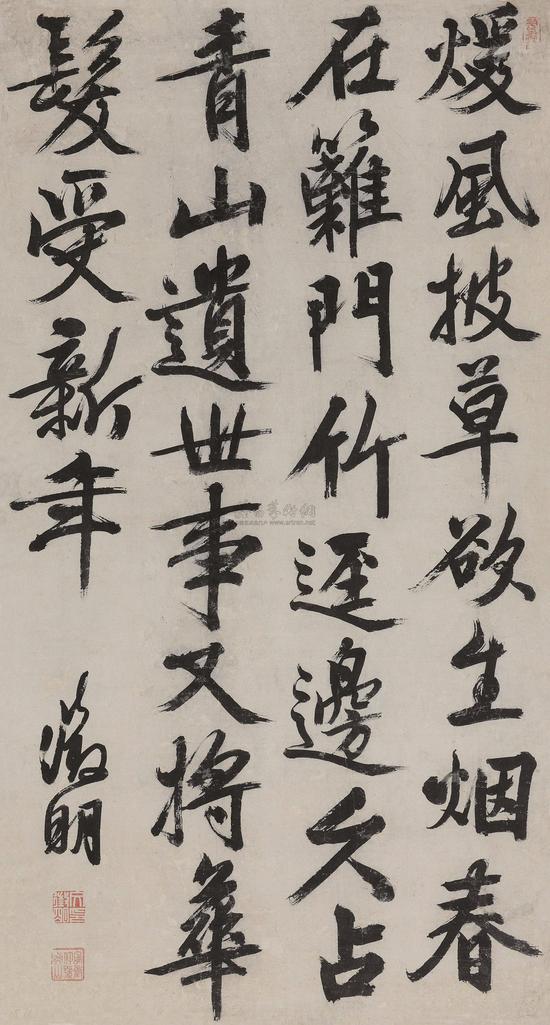 煖風披草欲生烟春
在籬門竹逕邊久占
青山遺世事又將華
髮受新年
徵明
www.artron.net